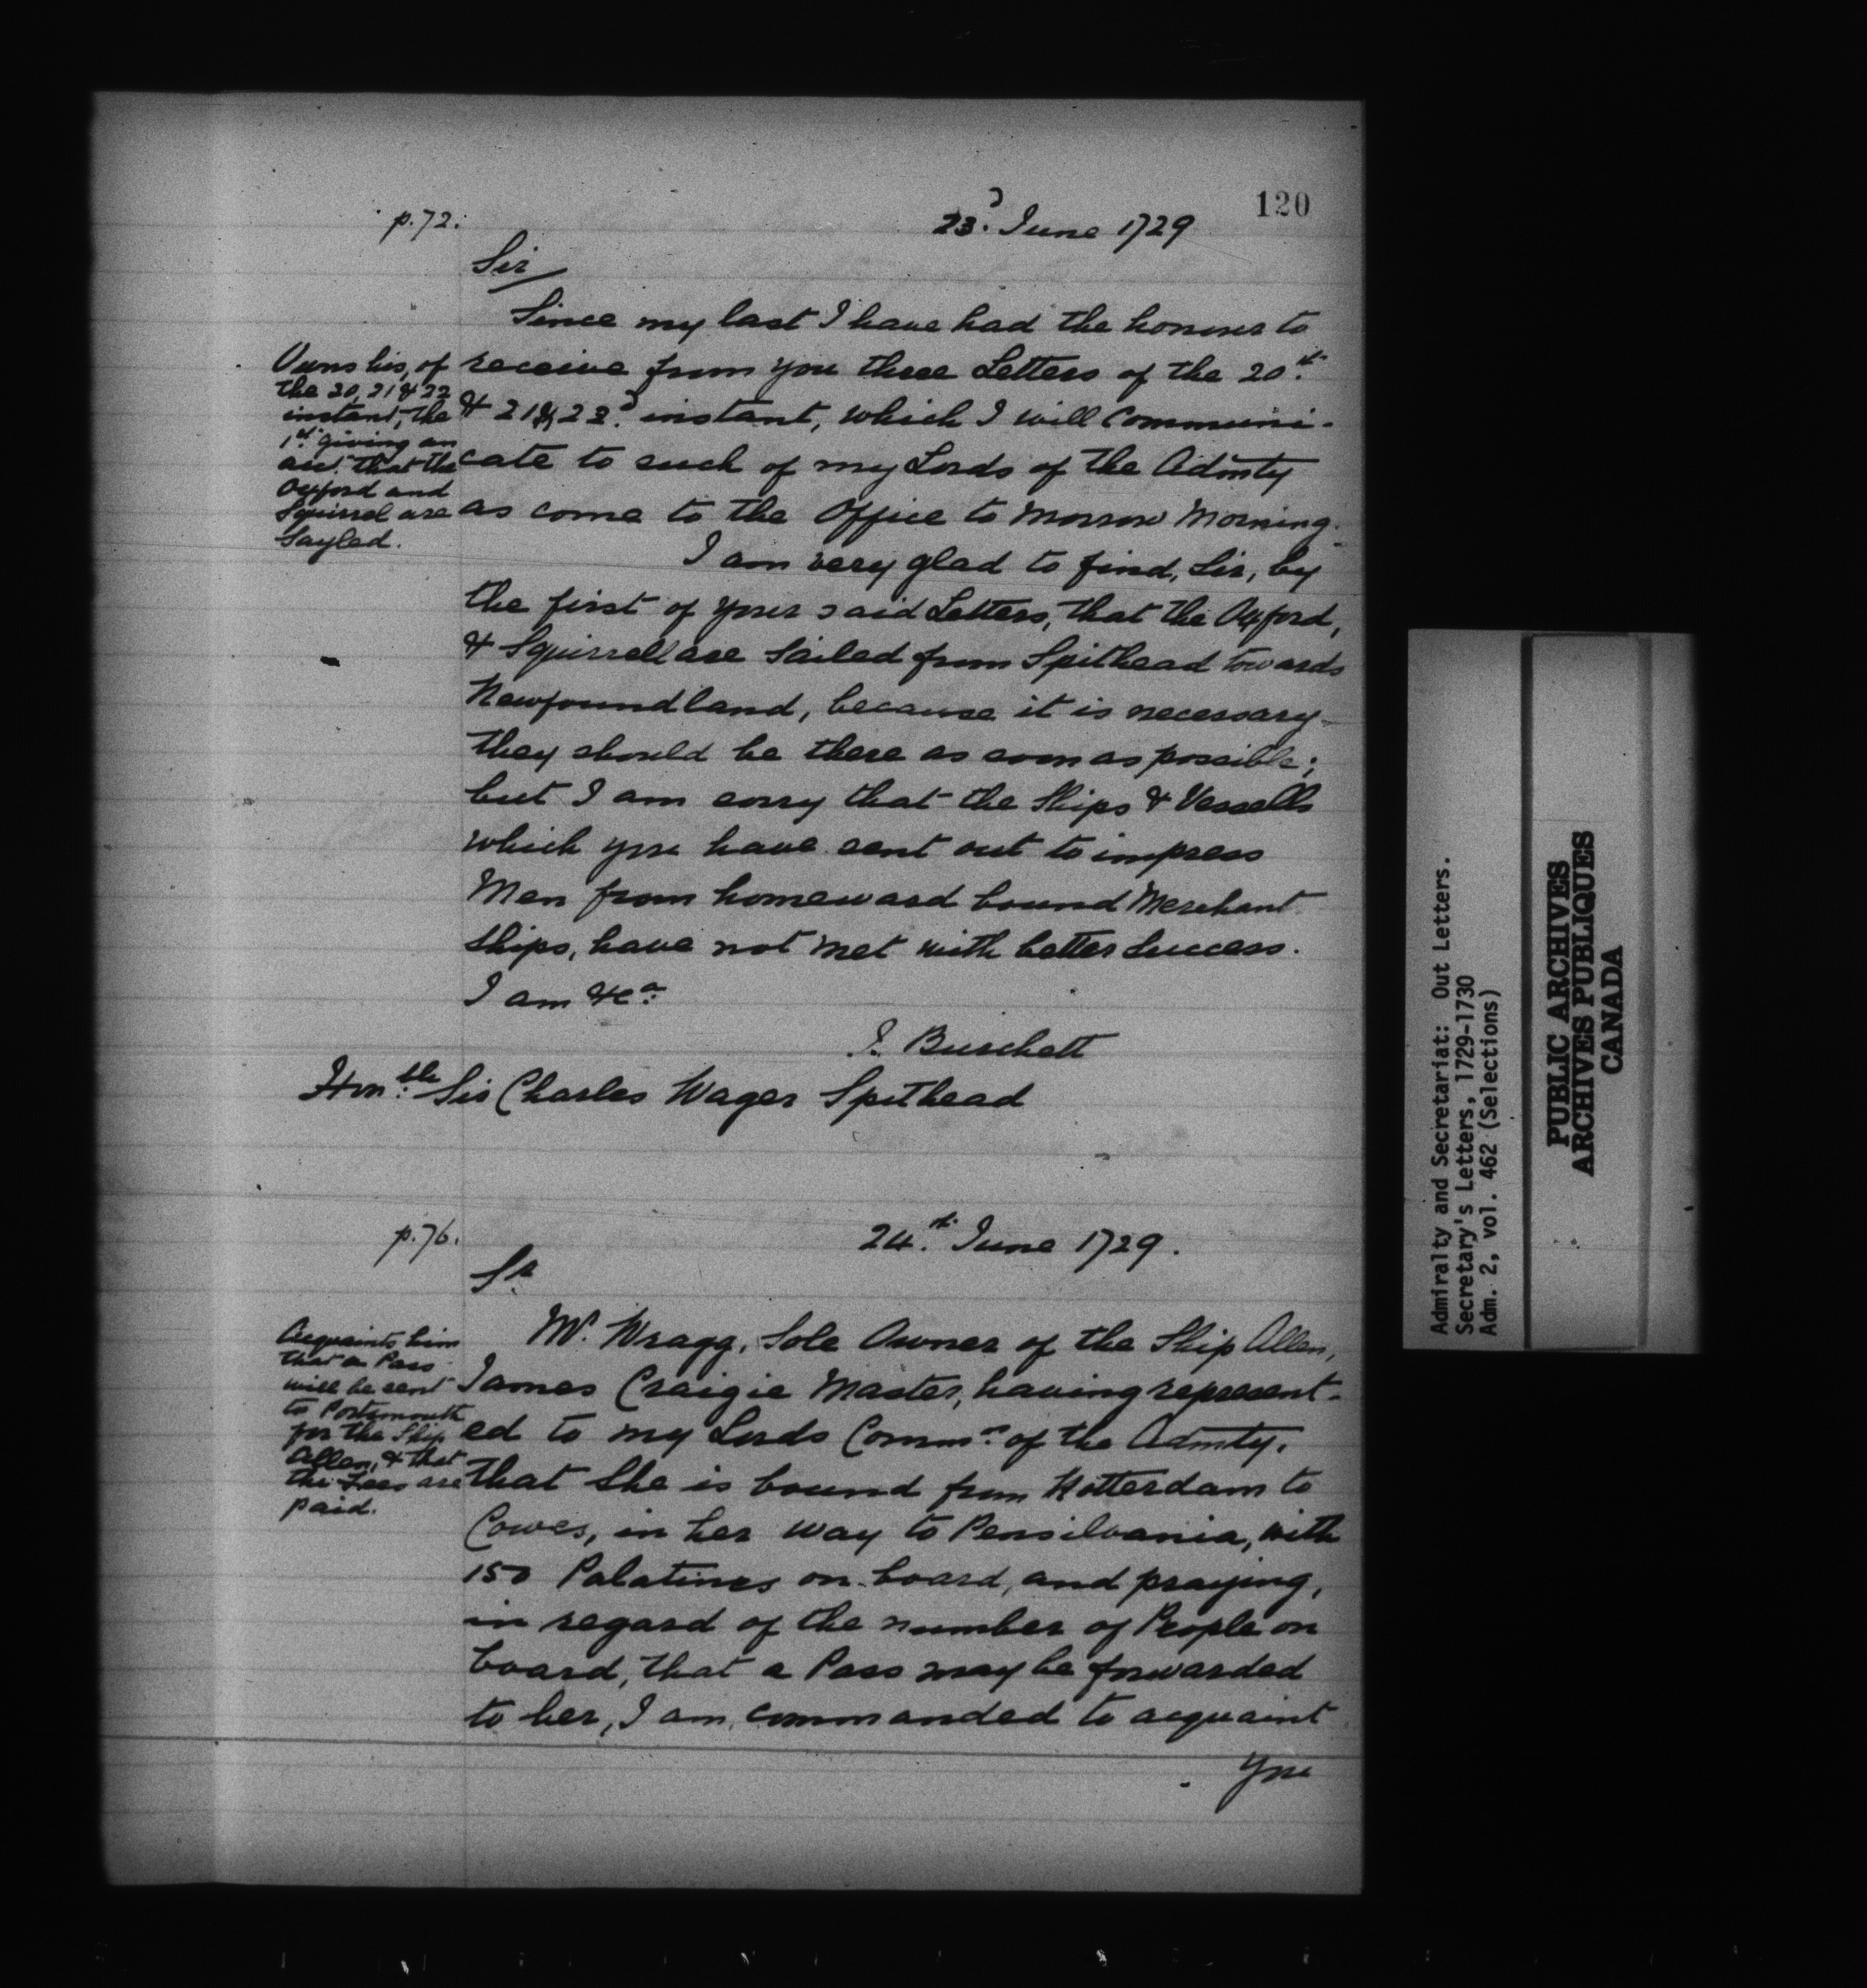 120
p.72.
23.d June 1729
Sir
Since my last I have had the honour to
receive from you three Letters of the 20.th
& 21 & 22.d instant, which I will Communi-
cate to such of my Lords of the Admty
as come to the Office to Morrow Morning.
Owns his, of
the 20, 21 & 22
instant, the
1.st giving an
acc.t that the
Oxford and
Squirrel are
Sayled.
I am very glad to find, Sir, by
the first of your said Letters, that the Oxford,
& Squirrell are Sailed from Spithead towards
Newfoundland, because it is necessary
they should be there as soon as possible;
but I am sorry that the Ships & Vessells
which you have sent out to impress
Men from homeward bound Merchant
Ships, have not met with better Success.
I am &c.a
J. Burchett
Hon.ble Sir Charles Wager Spithead
p.76.
24.th June 1729.
S.r
Mr. Wragg, Sole Owner of the Ship Allen,
James Craigie Master, having represent-
ed to my Lords Comm.rs of the Admty.
that She is bound from Rotterdam to
Cowes, in her way to Pensilvania, with
150 Palatines on board, and praying,
in regard of the number of People on
board, that a Pass may be forwarded
to her, I am commanded to acquaint
you
Acquaints him
that a Pass
will be sent
to Portsmouth
for the Ship
Allen, & that
the Fees are
paid.
Admiralty and Secretariat: Out Letters.
Secretary's Letters, 1729-1730
Adm. 2, vol. 462 (Selections)
PUBLIC ARCHIVES
ARCHIVES PUBLIQUES
CANADA